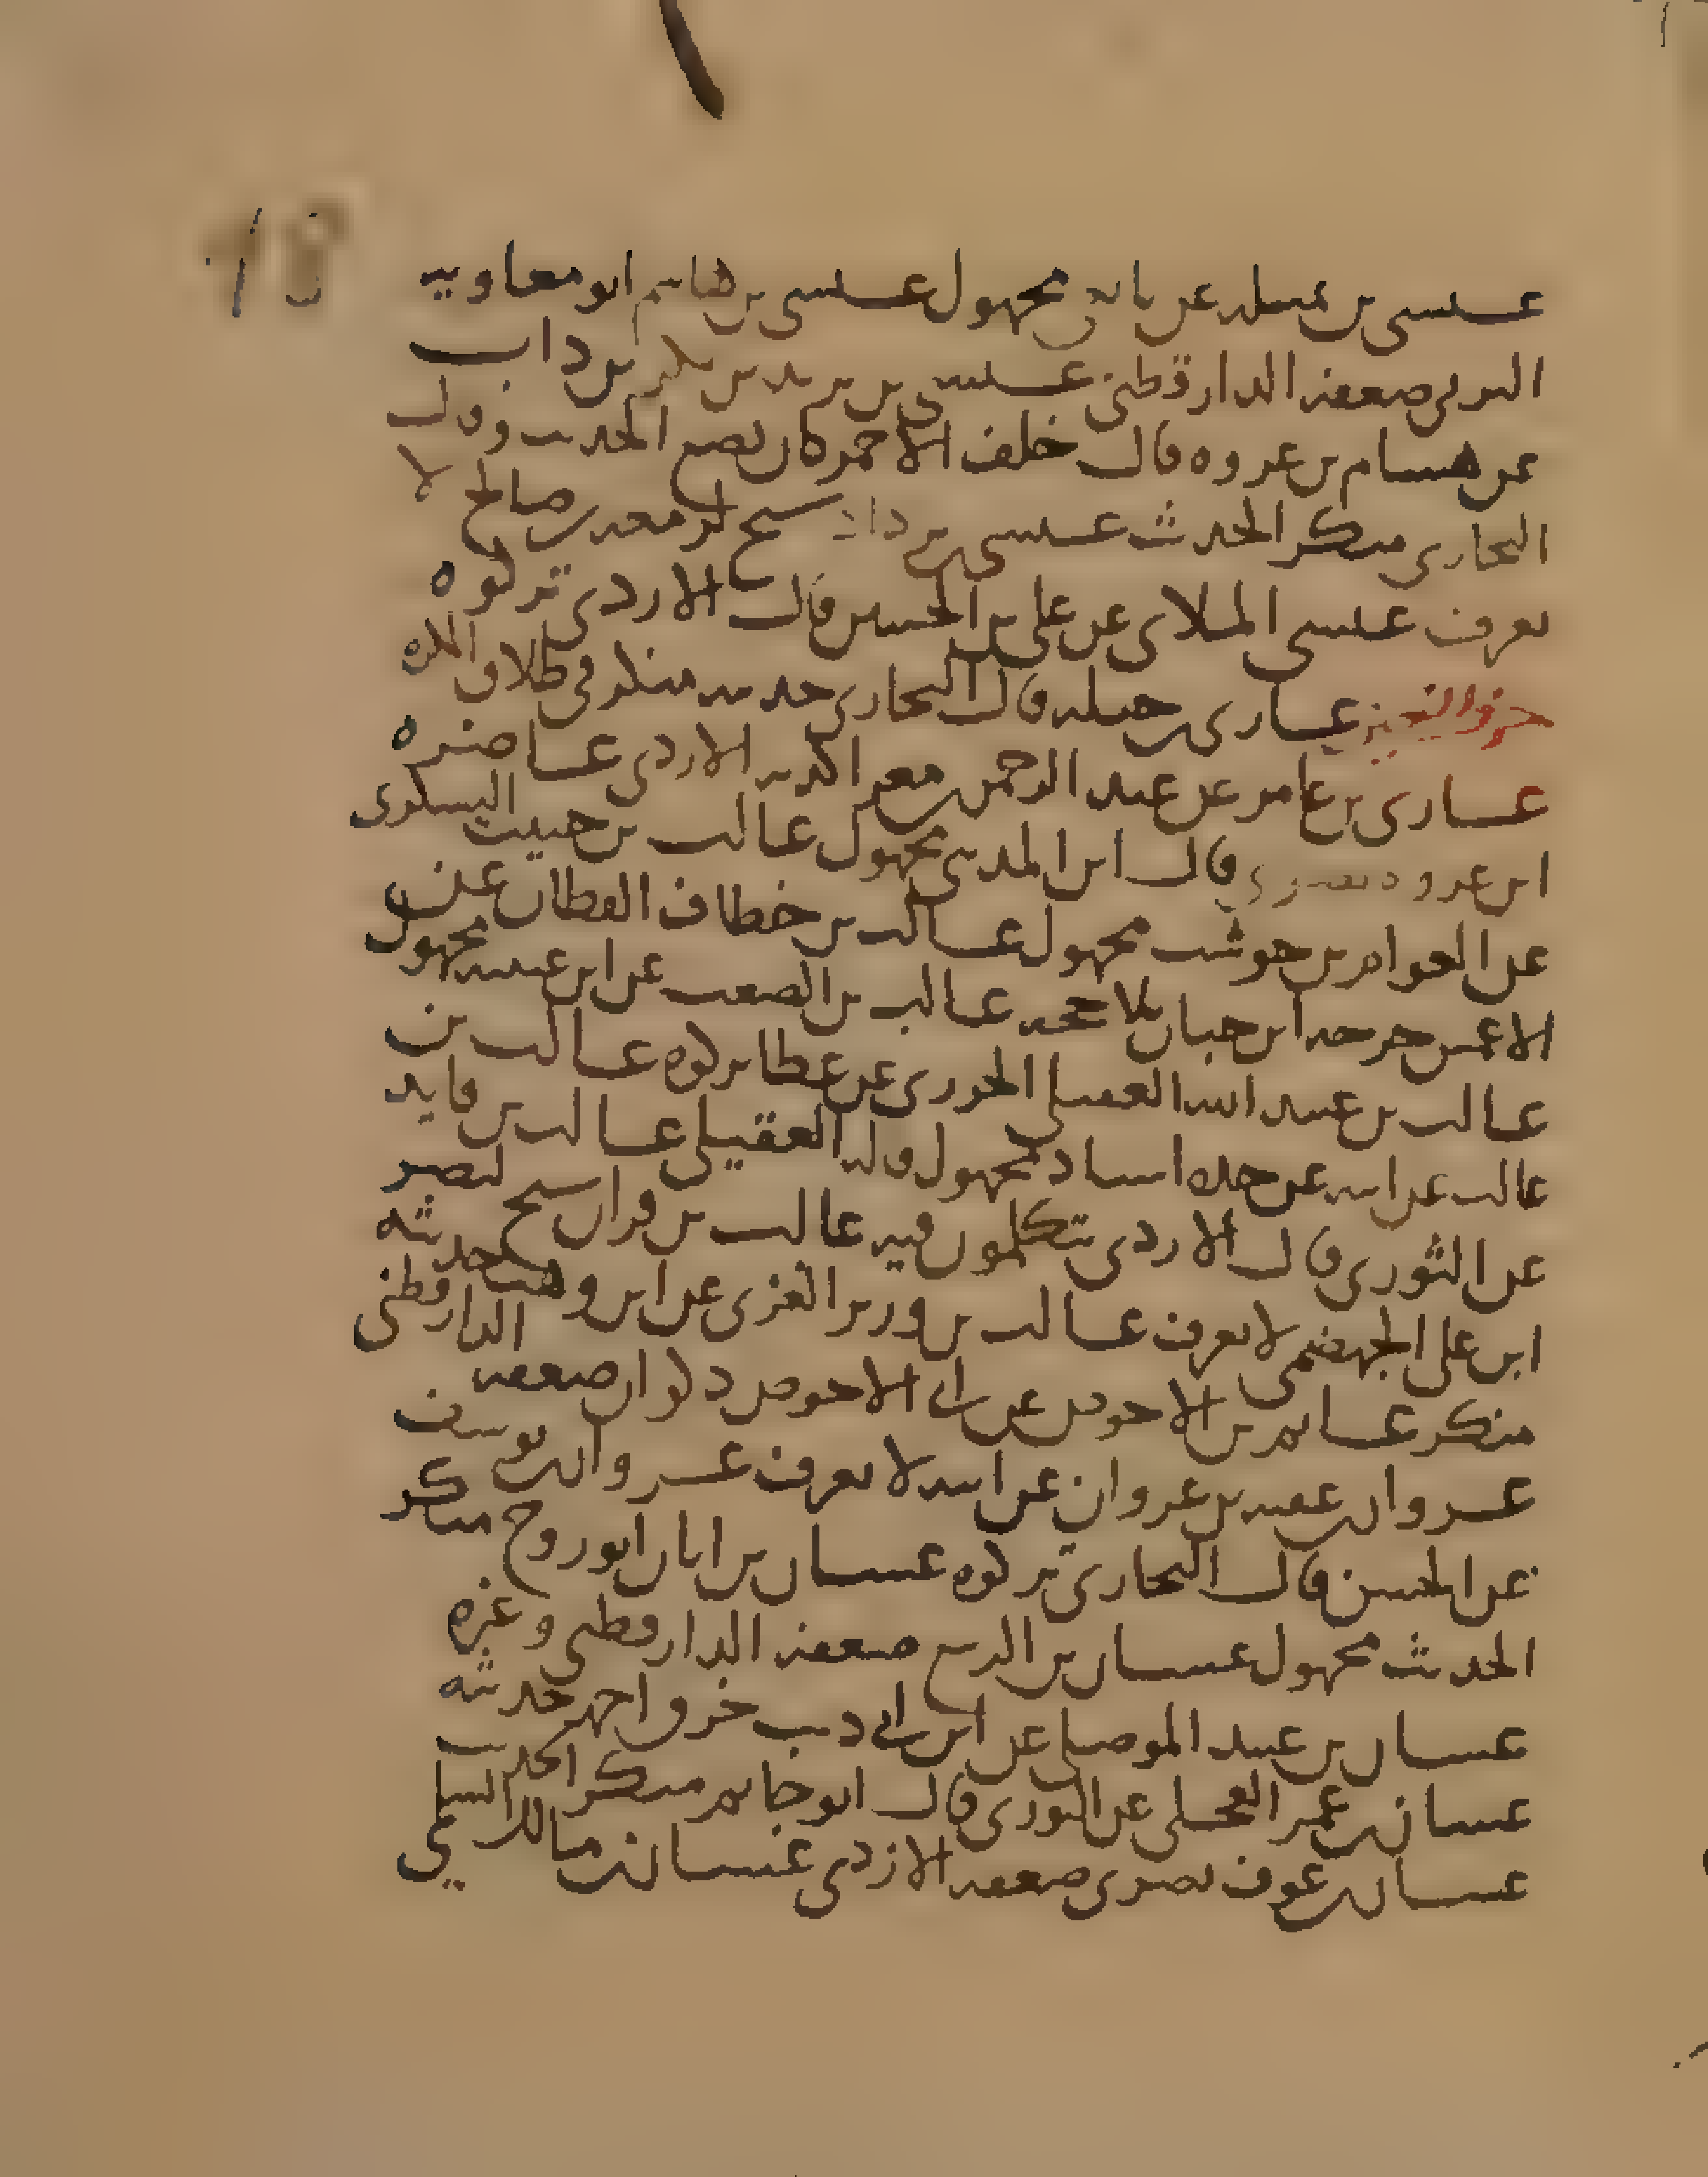 عيسى بن نميلة عن نافع مجهول عيسى بن هاشم ابو معاويه
البرني ضعفه الدارقطني عيسى بن يزيد بن بكر بن داب
عن هشام بن عروه قال خلف الاحمر كان يضع الحديث وقال
البخاري منكر الحديث عيسى بن يزداد شيخ لمعديرصالح لا
يعرف عيسى الملاي عن علي بن الحسين قال الازدي تركوه
حرف الغين غازي بن جبله قال البخاري حديثه منكر في طلاق المكره
غازي بن عامر عن عبد الرحمن بن مغرا كذبه الازدي غاضره
ابن عروه بصري قال ابن المديني مجهول غالب بن حبيب اليشكري
عن العوام بن حوشب مجهول غالب بن خطاف القطان عن
الاعمش جرحه ابن حبان بلا حجه غالب بن الصعب عن ابن عيينه مجهول
غالب بن عبيد الله العقيلي الجزري عن عطا تركوه غالب بن
غالب عن ابيه عن جده اسناد مجهول قاله العقيلي غالب بن فايد
عن الثوري قال الازدي يتكلمون فيه غالب بن قران شيخ لنصر
ابن علي الجهضمي لا يعرف غالب بن وزير الغزي عن ابن وهب حديثه
منكر غانم بن الاحوص عن ابي الاحوص ذكوان ضعفه الدارقطني
غزوان بن عتبه بن غزوان عن ابيه لا يعرف غزوان بن يوسف
عن الحسن قال البخاري تركوه غسان بن ابان ابو روح منكر
الحديث مجهول غسان بن الربيع ضعفه الدارقطني وغيره
غسان بن عبيد الموصلي عن ابن ابي ذيب خرق احمد حديثه
غسان بن عمر العجلي عن الثوري قال ابو حاتم منكر الحديث
غسان بن عوف بصري ضعفه الازدي غسان بن مالك السلمي